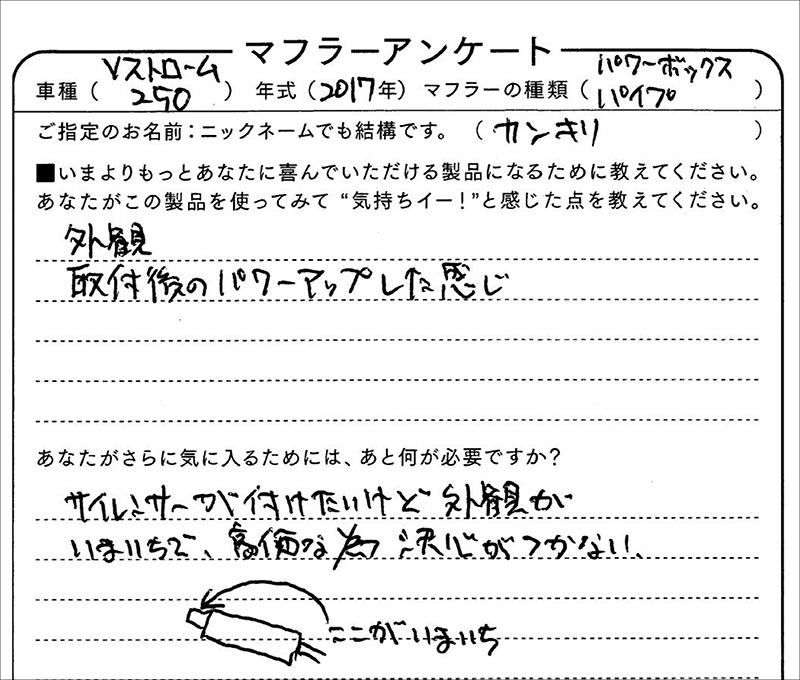 マフラーアンケート
車種（Vストローム250） 年式（2017年） マフラーの種類（パワーボックスパイプ）
ご指定のお名前：ニックネームでも結構です。（カンキリ）
■いまよりもっとあなたに喜んでいただける製品になるために教えてください。
あなたがこの製品を使ってみて“気持ちイー！”と感じた点を教えてください。
外観
取付後のパワーアップした感じ
あなたがさらに気に入るためには、あと何が必要ですか？
サイレンサーが付けたいけど外観が
いまいちで、高価な為決心がつかない、
ここがいまいち